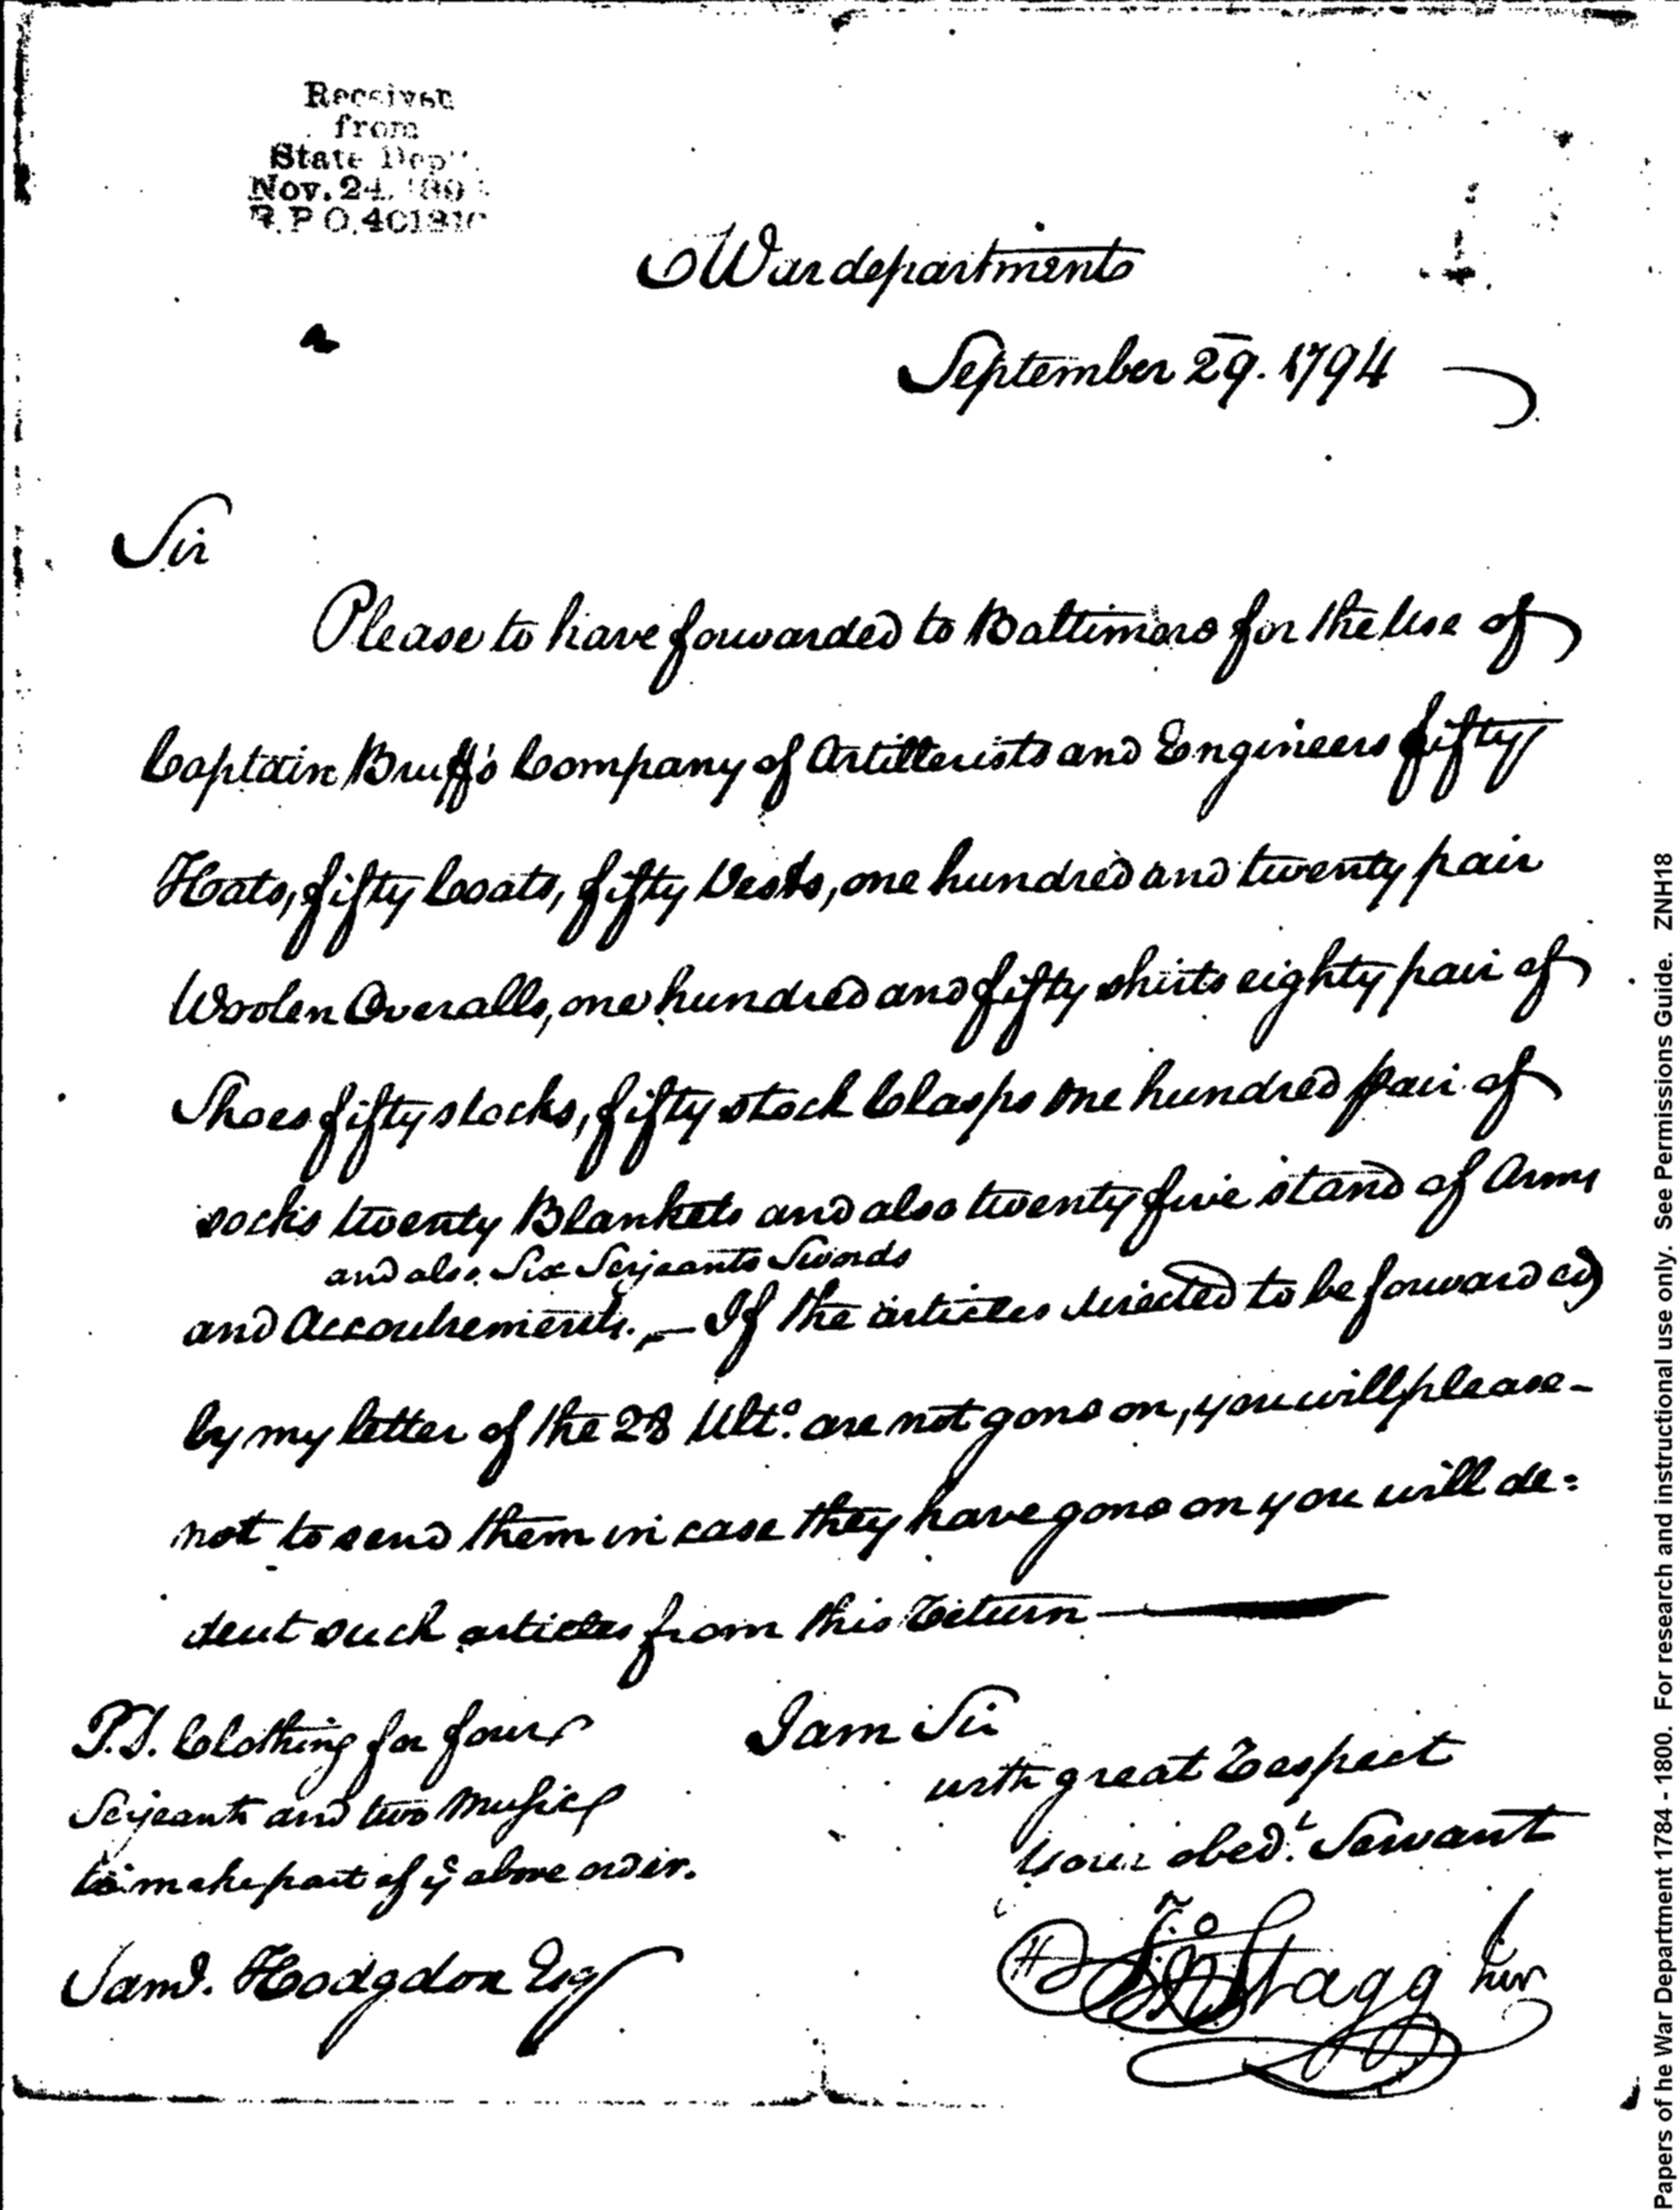 Received
from
State Dep't
Nov. 24,
War department
September 29. 1794
Sir
Please to have forwarded to Baltimore for the Use of
Captain Bruff's Company of Artillerists and Engineers fifty
Hats, fifty Coats, fifty Vests, one hundred and twenty pair
Woolen Overalls, one hundred and fifty shirts eighty pair of
Shoes fifty stocks, fifty stock Clasps one hundred pair of
socks twenty Blankets and also twenty five stand of Arms
and also Six Serjeants Swords
and Accoutrements. — If the articles directed to be forwarded
by my letter of the 28 Ulto. are not gone on, you will please
not to send them in case they have gone on you will de=
duct such articles from this Return
P.S. Clothing for four
Serjeants and two Music
to make part of ye above order.
Saml. Hodgdon Esq
I am Sir
with great Respect
Your obedt. Servant
Jno Stagg Junr
Papers of he War Department 1784 - 1800. For research and instructional use only. See Permissions Guide. ZNH18